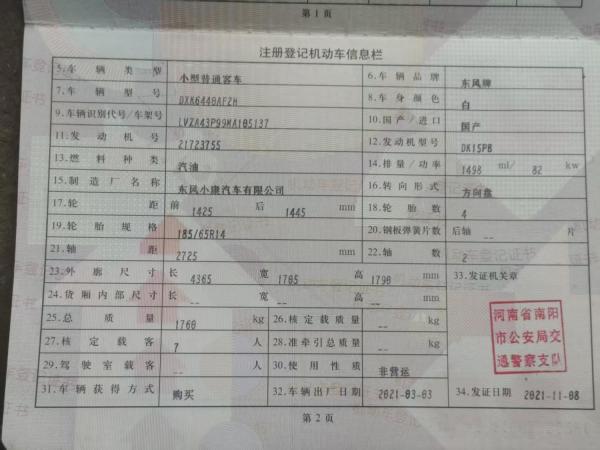 第1页
注册登记机动车信息栏
5.车辆类型 小型普通客车 6.车辆品牌 东风牌
7.车辆型号 DXK6440AF2H 8.车身颜色 白
9.车辆识别代号/车架号 LVZA43P99MA105137 10.国产/进口 国产
11.发动机号 21723755 12.发动机型号 DK15PB
13.燃料种类 汽油 14.排量/功率 1498 ml/ 82 kw
15.制造厂名称 东风小康汽车有限公司 16.转向形式 方向盘
17.轮距 前 1425 后 1445 mm 18.轮胎数 4
19.轮胎规格 185/65R14 20.钢板弹簧片数 后轴 -- 片
21.轴距 2725 mm 22.轴数 2
23.外廓尺寸 长 4365 宽 1705 高 1790 mm 33.发证机关章
24.货厢内部尺寸 长 -- 宽 -- 高 -- mm
25.总质量 1760 kg 26.核定载质量 -- kg
27.核定载客 7 人 28.准牵引总质量 -- kg
河南省南阳
市公安局交
通警察支队
29.驾驶室载客 -- 人 30.使用性质 非营运
31.车辆获得方式 购买 32.车辆出厂日期 2021-03-03 34.发证日期 2021-11-08
第2页